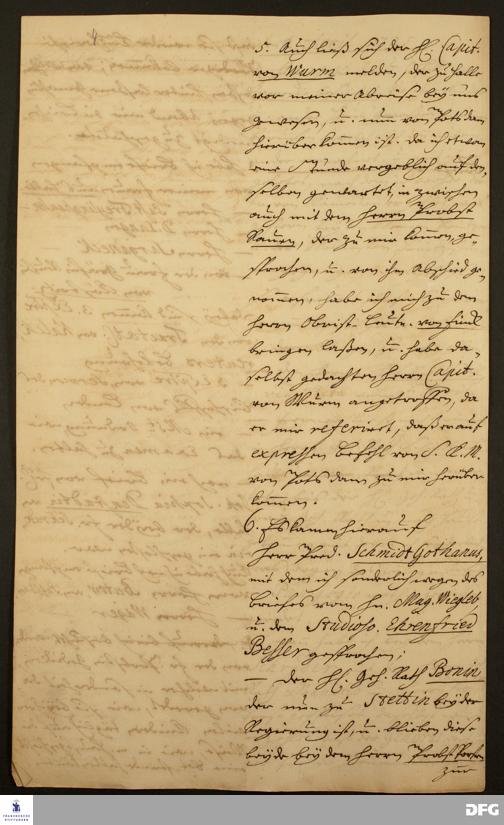 5. Auch ließ sich der H. Capit.
von Wurm melden, der zu Halle
vor meiner Abreise bey uns
gewesen, u. nun von Potsdam
hierüber kommen ist. da ich etwan
eine Stunde vergeblich auf den-
selben gewartet, inzwischen
auch mit dem Herrn Probst
der zu mir kommen, ge-
sprochen, u. von ihm Abschied ge-
nommen, habe ich mich zu dem
Herrn Obrist-Leutn. von
bringen laßen, u. habe da-
selbst gedachten Herrn Capit.
von Wurm angetroffen, da
er mir referiret, daß er auf
expressen Befehl von S. K. M.
von Potsdam zu mir herüber
kommen.
6. Es kam hierauf
Herr Pred. Schmidt Gothanus,
mit dem ich sonderlich wegen des
Briefes vom Hn. Mag. Wiegleb,
u. dem Studioso Ehrenfried
Besser gesprochen;
— der H. Geh. Rath Bonin
der nun zu Stettin bey der
Regierung ist, u. blieben diese
beyde bey dem Herrn Probst
zur
FRANCKESCHE
STIFTUNGEN
DFG